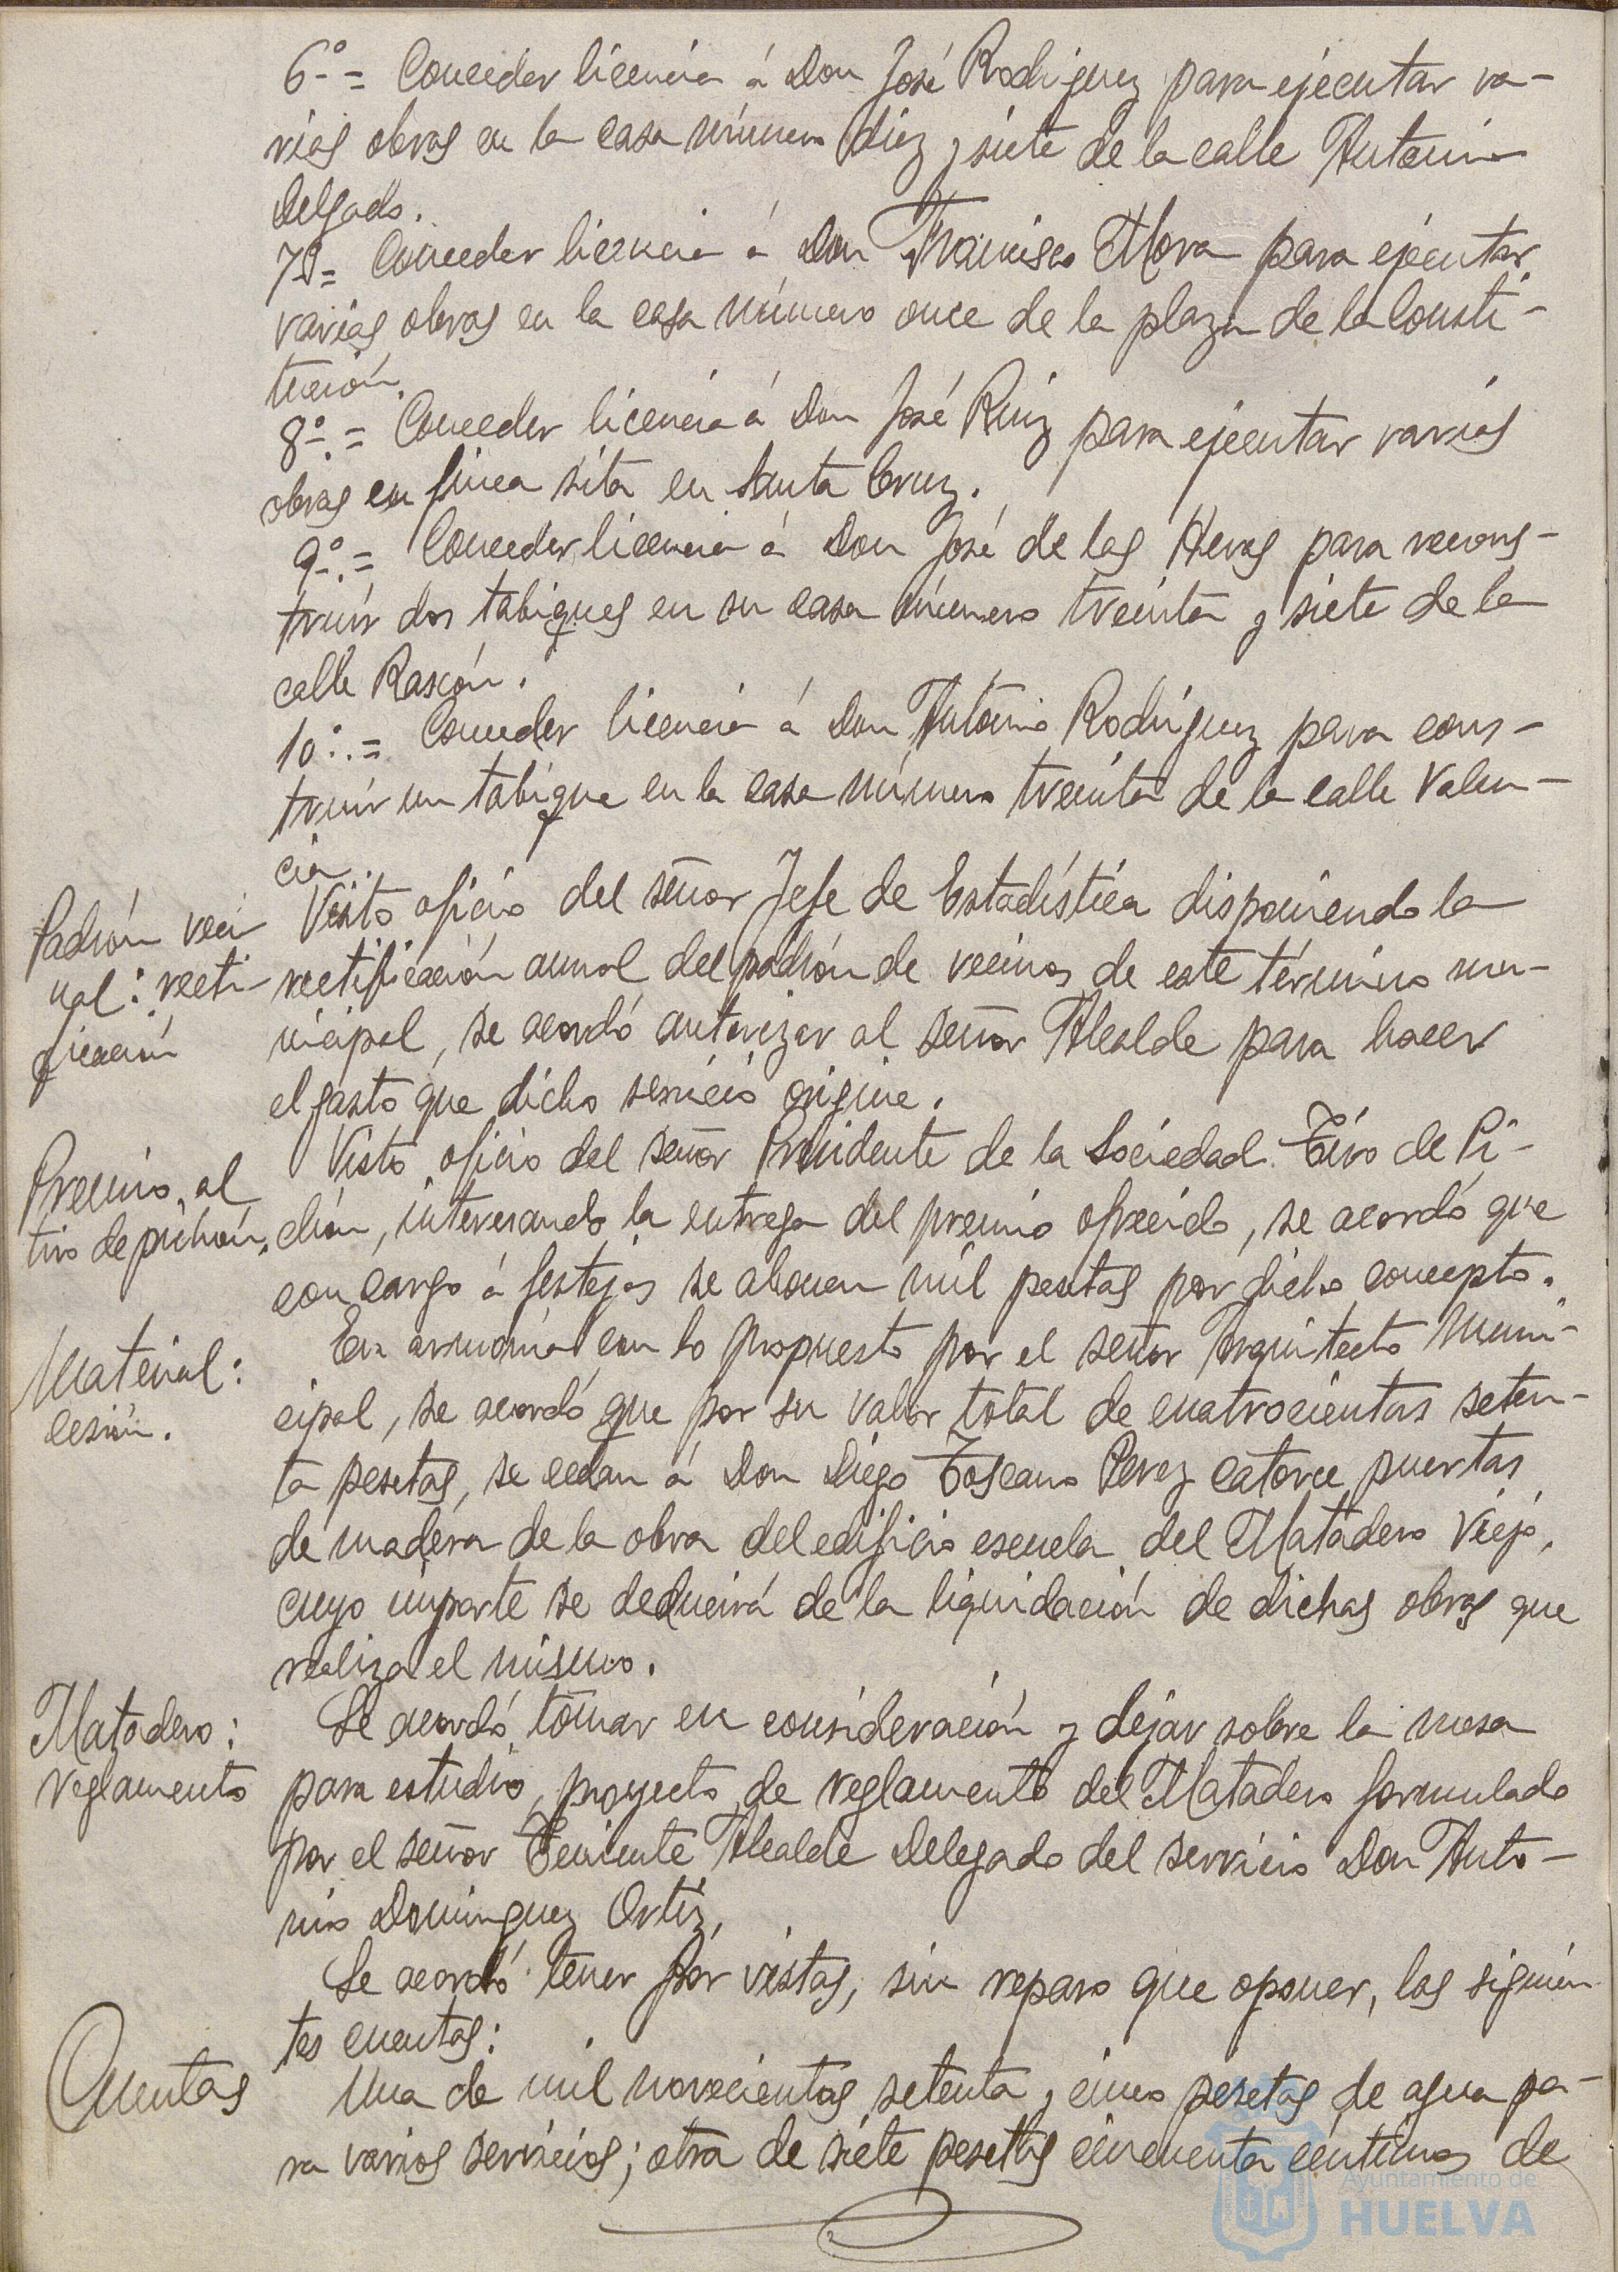 6º = Conceder licencia á Don José Rodriguez para ejecutar va-
rias obras en la casa número diez y siete de la calle Antonio
Delgado.
7º = Conceder licencia á Don Francisco Mora para ejecutar
varias obras en la casa número once de la plaza de la Consti-
tución.
8º. = Conceder licencia á Don José Ruiz para ejecutar varias
obras en finca sita en Santa Cruz.
9º. = Conceder licencia á Don José de las Heras para recons-
truir dos tabiques en su casa número treinta y siete de la
calle Rascón.
10º. = Conceder licencia á Don Antonio Rodríguez para cons-
truir un tabique en la casa número treinta de la calle Valen-
cia.
Padrón veci
nal: recti-
ficación
Visto oficio del señor Jefe de Estadística disponiendo la
rectificación anual del padrón de vecinos de este término mu-
nicipal, se acordó autorizar al señor Alcalde para hacer
el gasto que dicho servicio origine.
Premio al
tiro de pichón.
Visto oficio del señor Presidente de la Sociedad Tiro de Pi-
chón, interesando la entrega del premio ofrecido, se acordó que
con cargo á festejos se abonen mil pesetas por dicho concepto.
Material:
cesión.
En armonía con lo propuesto por el señor Arquitecto Muni-
cipal, se acordó que por su valor total de cuatrocientas seten-
ta pesetas, se cedan á Don Diego Toscano Perez catorce puertas
de madera de la obra del edificio escuela del Matadero Viejo,
cuyo importe se deducirá de la liquidación de dichas obras que
realiza el mismo.
Matadero:
reglamento
Se acordó tomar en consideración y dejar sobre la mesa
para estudio, proyecto de reglamento del Matadero formulado
por el señor Teniente Alcalde Delegado del servicio Don Anto-
nio Dominguez Ortiz.
Se acordó tener por vistas, sin reparo que oponer, las siguien
tes cuentas:
Cuentas
Una de mil novecientas setenta y cinco pesetas de agua pa-
ra varios servicios; otra de siete pesetas cincuenta céntimos de
Ayuntamiento de
HUELVA